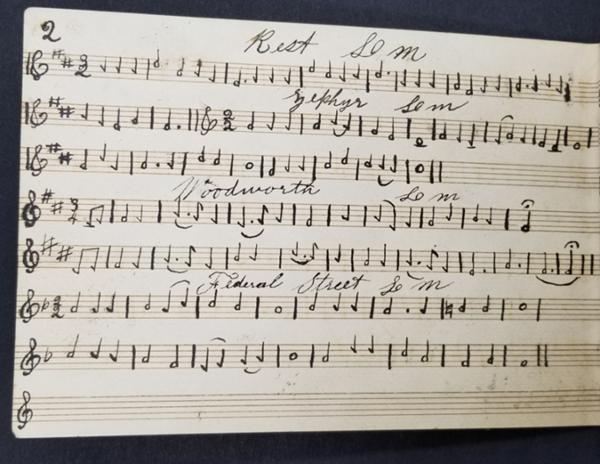 2
Rest L M
Zephyr L M
Woodworth L M
Federal Street L M